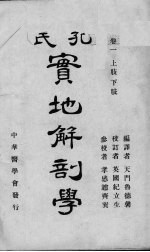 孔氏
實地解剖學
卷一上肢下肢
編譯者 天門魯德馨
校訂者 英國紀立生
參校者 孝感魏齊寅
中華醫學會發行